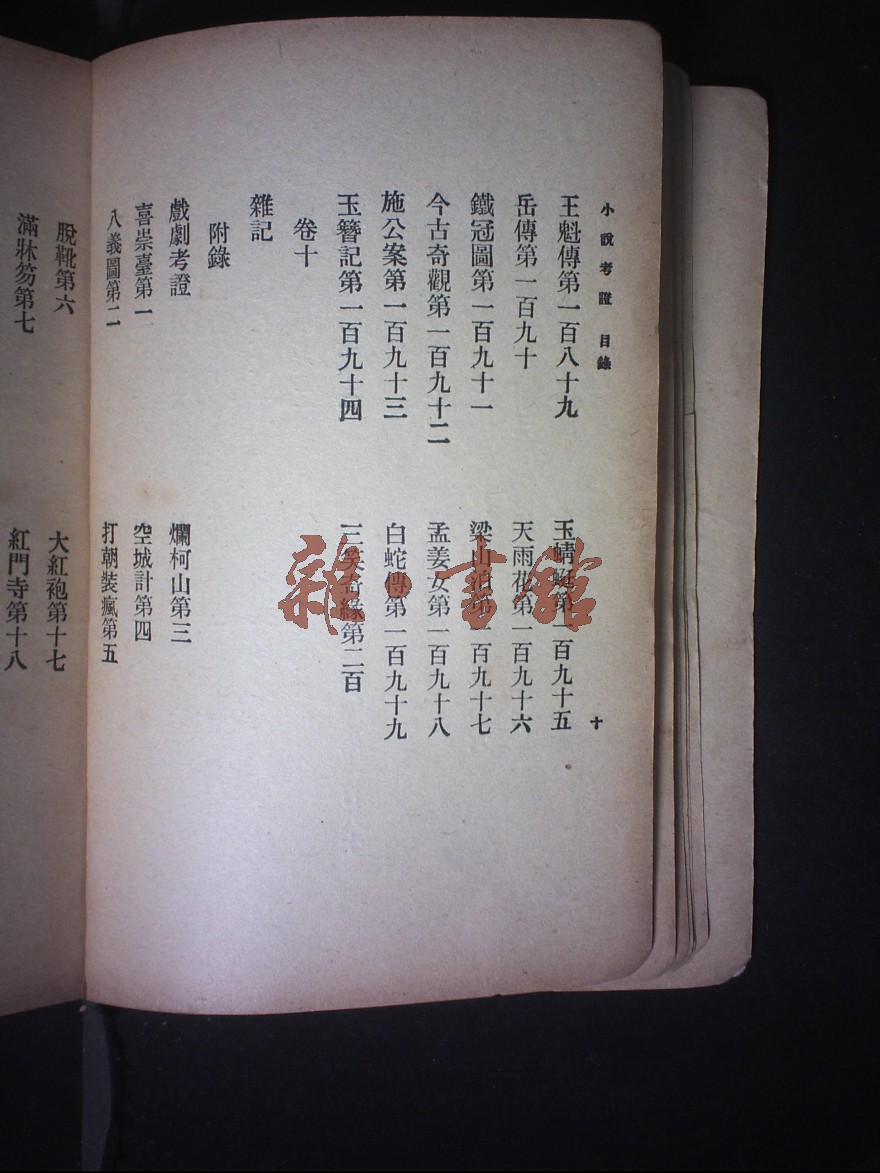 小說考證 目錄
十
王魁傳第一百八十九
玉蜻蜓第一百九十五
岳傳第一百九十
天雨花第一百九十六
鐵冠圖第一百九十一
梁山伯第一百九十七
今古奇觀第一百九十二
孟姜女第一百九十八
施公案第一百九十三
白蛇傳第一百九十九
玉簪記第一百九十四
三笑奇緣第二百
卷十
雜記
附錄
戲劇考證
爛柯山第三
喜崇臺第一
空城計第四
八義圖第二
打朝裝瘋第五
脫靴第六
大紅袍第十七
滿牀笏第七
紅門寺第十八
雜·書館